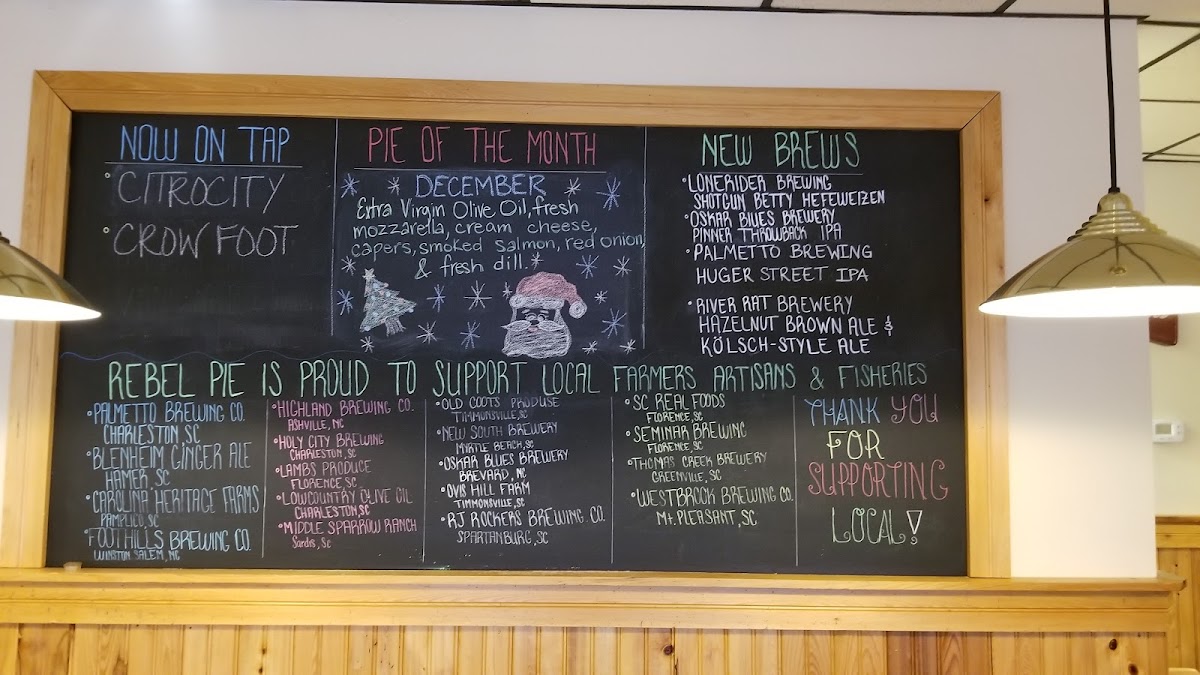 NOW ON TAP
• CITROCITY
• CROW FOOT
PIE OF THE MONTH
DECEMBER
Extra Virgin Olive Oil, fresh
mozzarella, cream cheese,
capers, smoked salmon, red onion,
& fresh dill.
NEW BREWS
• LONERIDER BREWING
SHOTGUN BETTY HEFEWEIZEN
• OSKAR BLUES BREWERY
PINNER THROWBACK IPA
• PALMETTO BREWING
HUGER STREET IPA
• RIVER RAT BREWERY
HAZELNUT BROWN ALE &
KÖLSCH-STYLE ALE
REBEL PIE IS PROUD TO SUPPORT LOCAL FARMERS ARTISANS & FISHERIES
• PALMETTO BREWING CO.
CHARLESTON, SC
• BLENHEIM GINGER ALE
HAMER, SC
• CAROLINA HERITAGE FARMS
PAMPLICO, SC
• FOOTHILLS BREWING CO.
WINSTON SALEM, NC
• HIGHLAND BREWING CO.
ASHVILLE, NC
• HOLY CITY BREWING
CHARLESTON, SC
• LAMBS PRODUCE
FLORENCE SC
• LOWCOUNTRY OLIVE OIL
CHARLESTON, SC
• MIDDLE SPARROW RANCH
Sardis, SC
• OLD COOTS PRODUSE
TIMMONSVILLE, SC
• NEW SOUTH BREWERY
MYRTLE BEACH, SC
• OSKAR BLUES BREWERY
BREVARD, NC
• OVIS HILL FARM
TIMMONSVILLE, SC
• RJ ROCKERS BREWING CO.
SPARTANBURG, SC
• SC REAL FOODS
FLORENCE, SC
• SEMINAR BREWING
FLORENCE, SC
• THOMAS CREEK BREWERY
GREENVILLE, SC
• WESTBROOK BREWING CO.
Mt. PLEASANT, SC
THANK YOU
FOR
SUPPORTING
LOCAL!